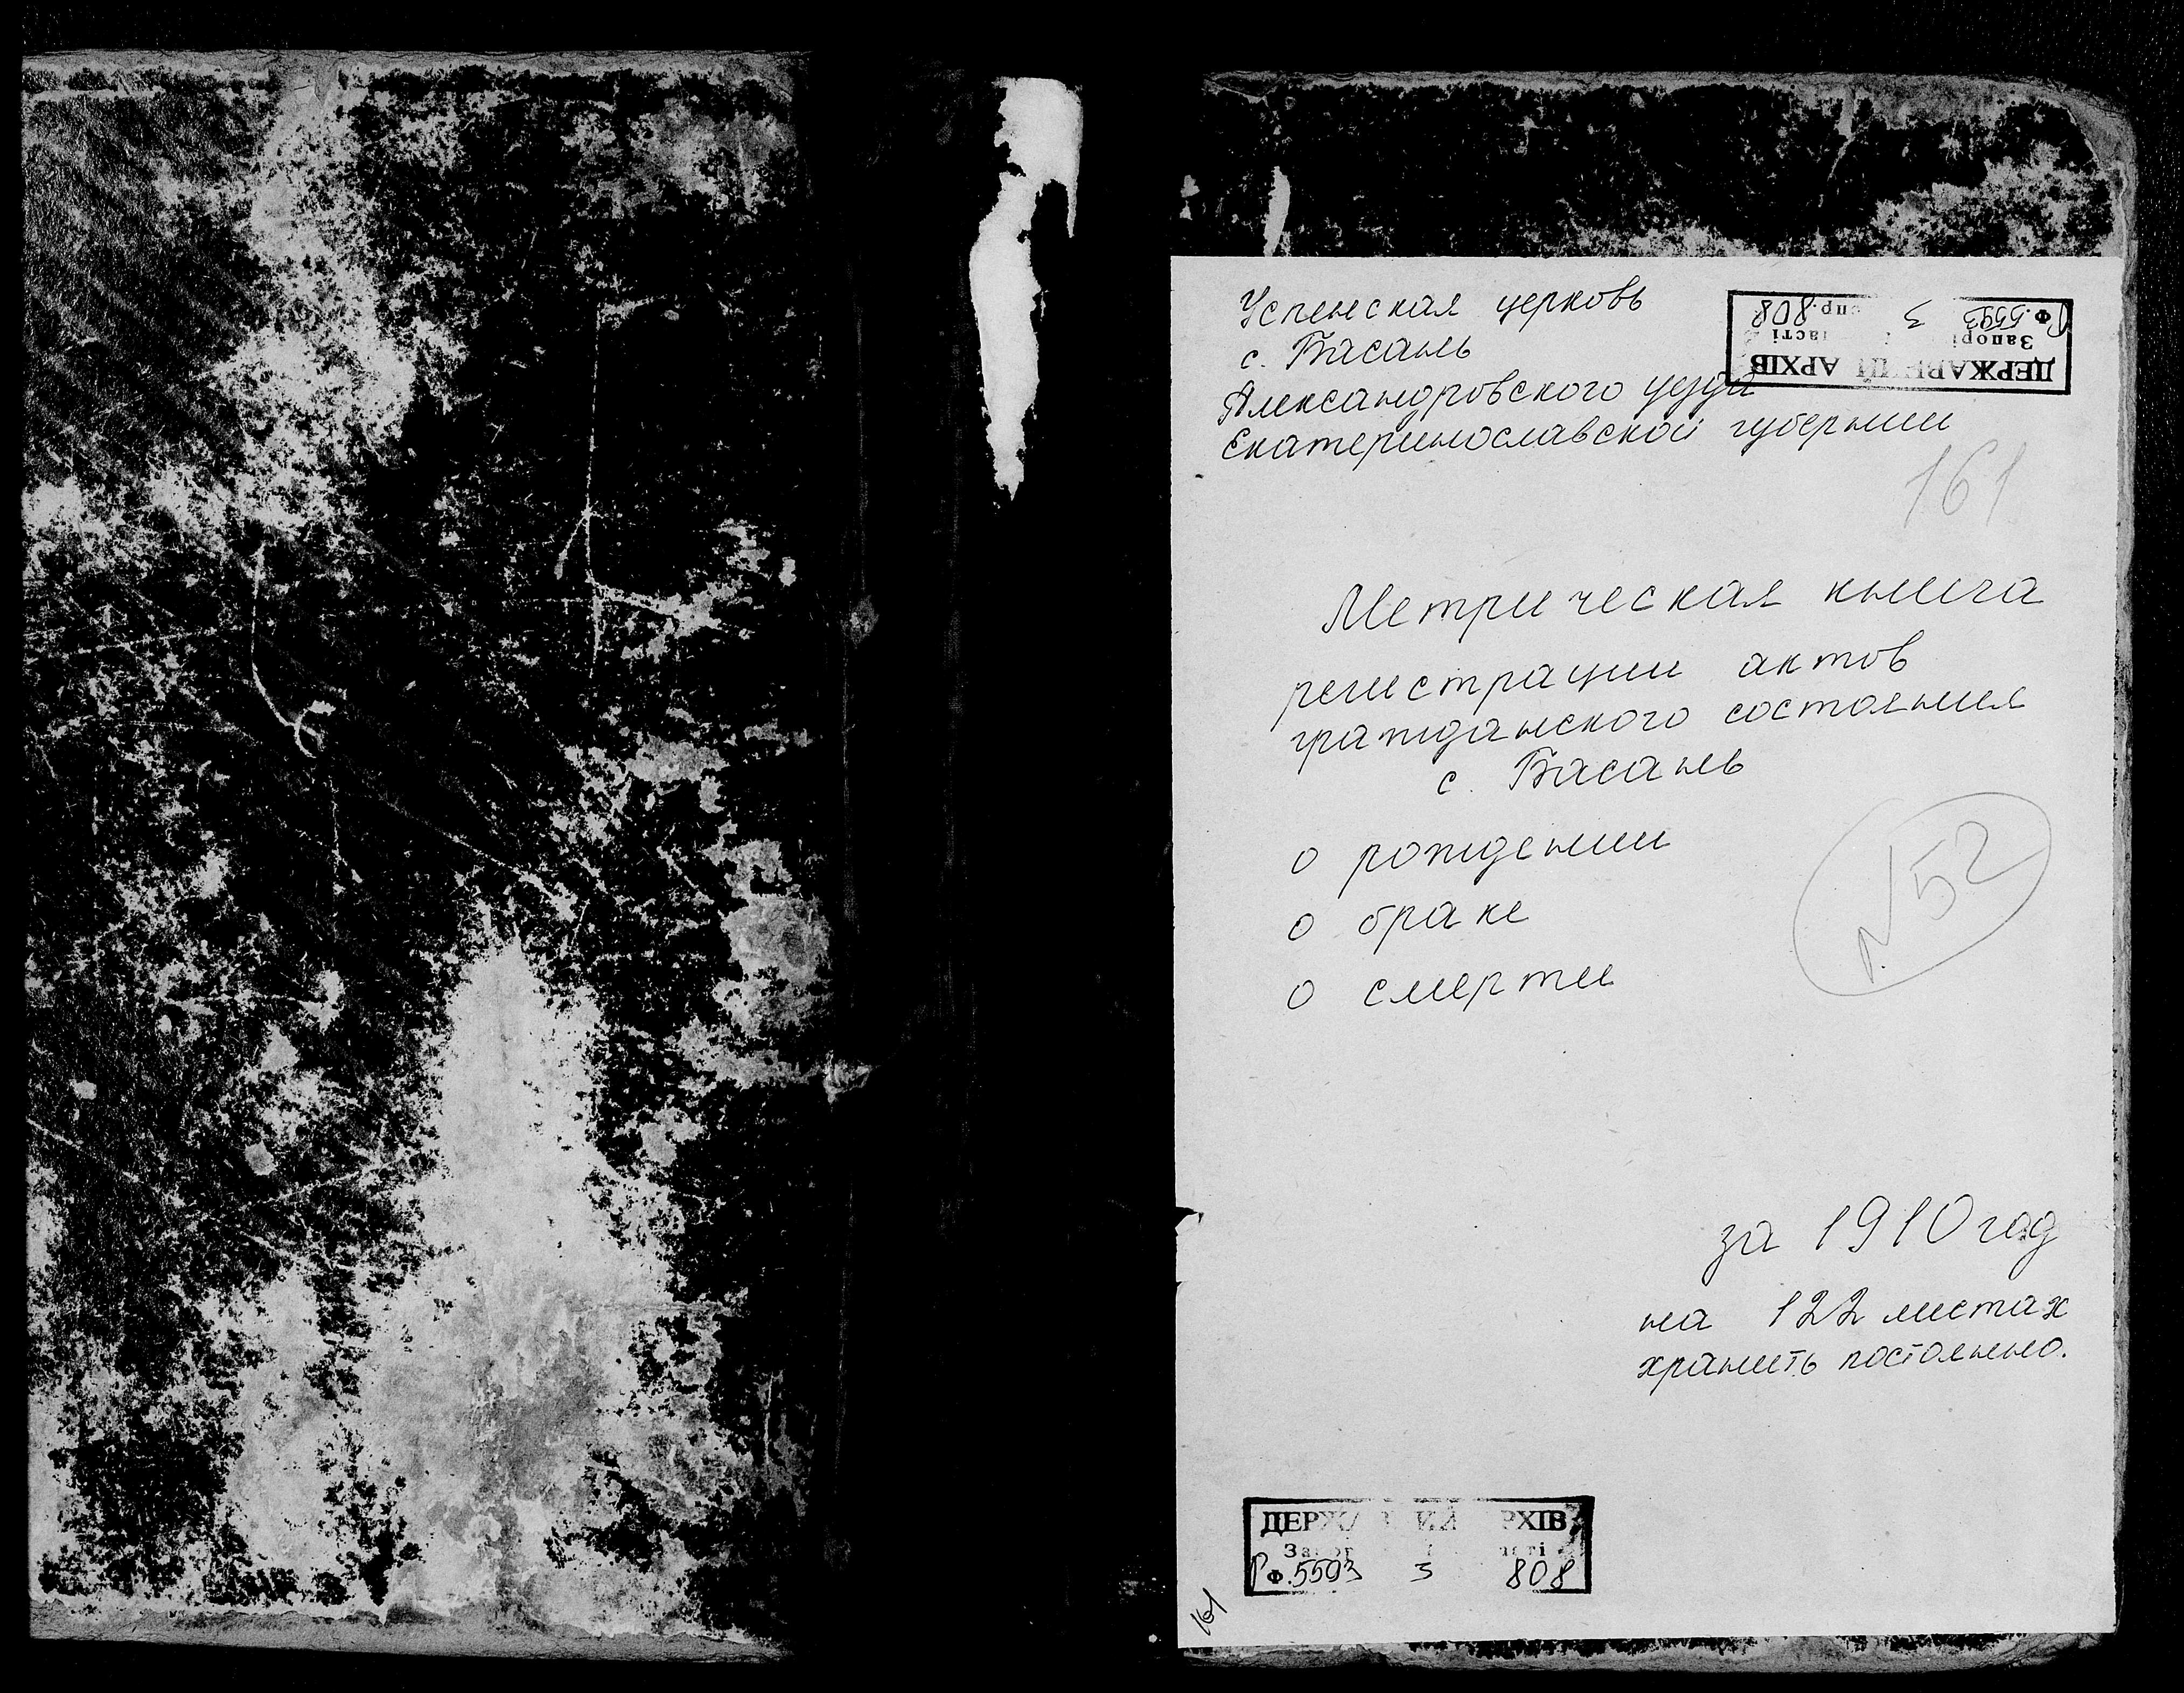 Успенская церковь
с. Басань
Александровского уезда
Екатеринославской губернии
ДЕРЖАВНИЙ АРХІВ
Запорі ласті
Рф. 5593 3 спр. 808
161
Метрическая книга
регистрации актов
гражданского состояния
с. Басань
о рождении
о браке
о смерти
N 52
за 1910 год
на 122 листах
хранить постоянно.
ДЕРЖАВНИЙ АРХІВ
Рф. 5593 3 808
161